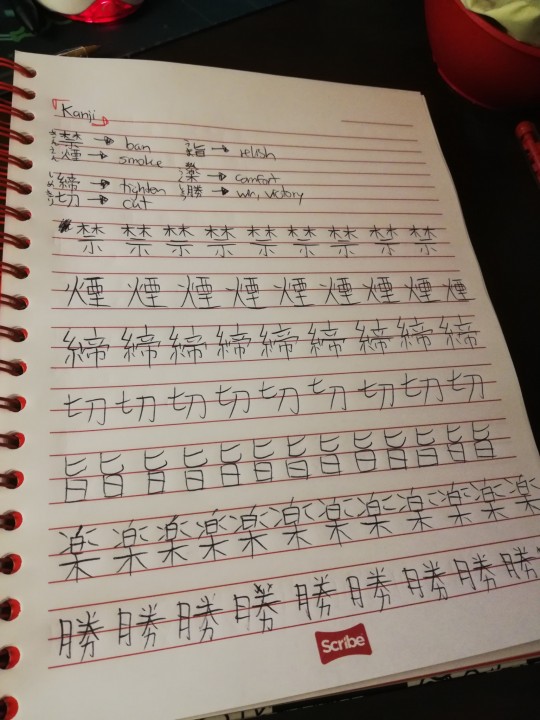 「Kanji」
禁 → ban 旨 → relish
煙 → smoke 楽 → comfort
締 → tighten 勝 → win, victory
切 → cut
禁 禁 禁 禁 禁 禁 禁 禁 禁
煙 煙 煙 煙 煙 煙 煙 煙 煙
締 締 締 締 締 締 締 締 締
切 切 切 切 切 切 切 切 切
旨 旨 旨 旨 旨 旨 旨 旨 旨 旨 旨 旨 旨
楽 楽 楽 楽 楽 楽 楽 楽 楽 楽 楽 楽
勝 勝 勝 勝 勝 勝 勝 勝 勝
Scribe